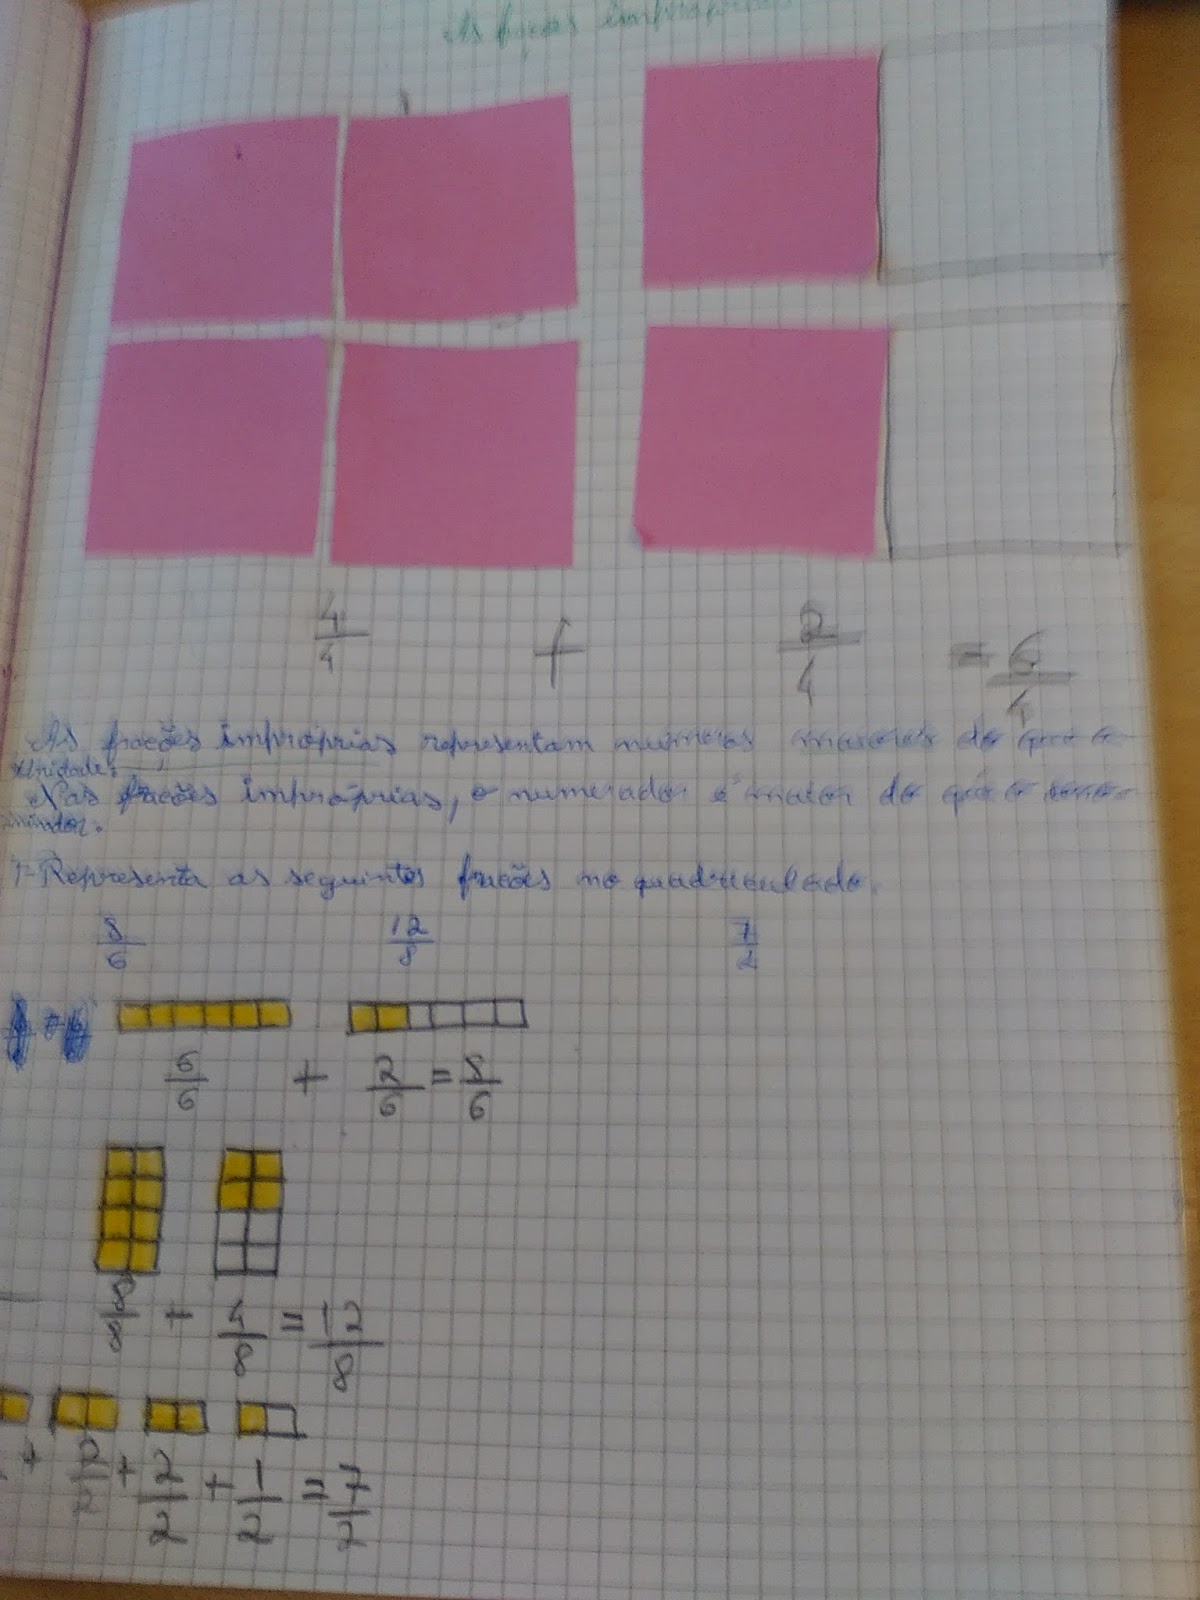 As frações impróprias
4/4 + 2/4 = 6/4
As frações impróprias representam números maiores do que a
unidade.
Nas frações impróprias, o numerador é maior do que o deno-
minador.
1- Representa as seguintes frações no quadriculado.
8/6 12/8 7/2
6/6 + 2/6 = 8/6
8/8 + 4/8 = 12/8
+ 2/2 + 2/2 + 1/2 = 7/2